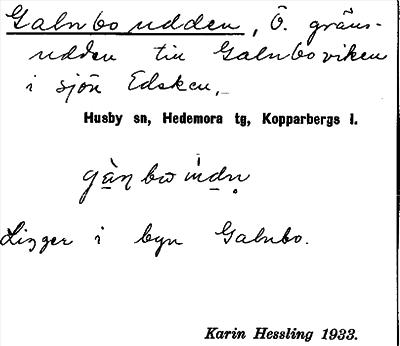 Galnboudden, Ö. gräns-
udden till Galnboviken
i sjön Edsken.
Husby sn, Hedemora tg, Kopparbergs l.
Ligger i byn Galnbo.
Karin Hessling 1933.